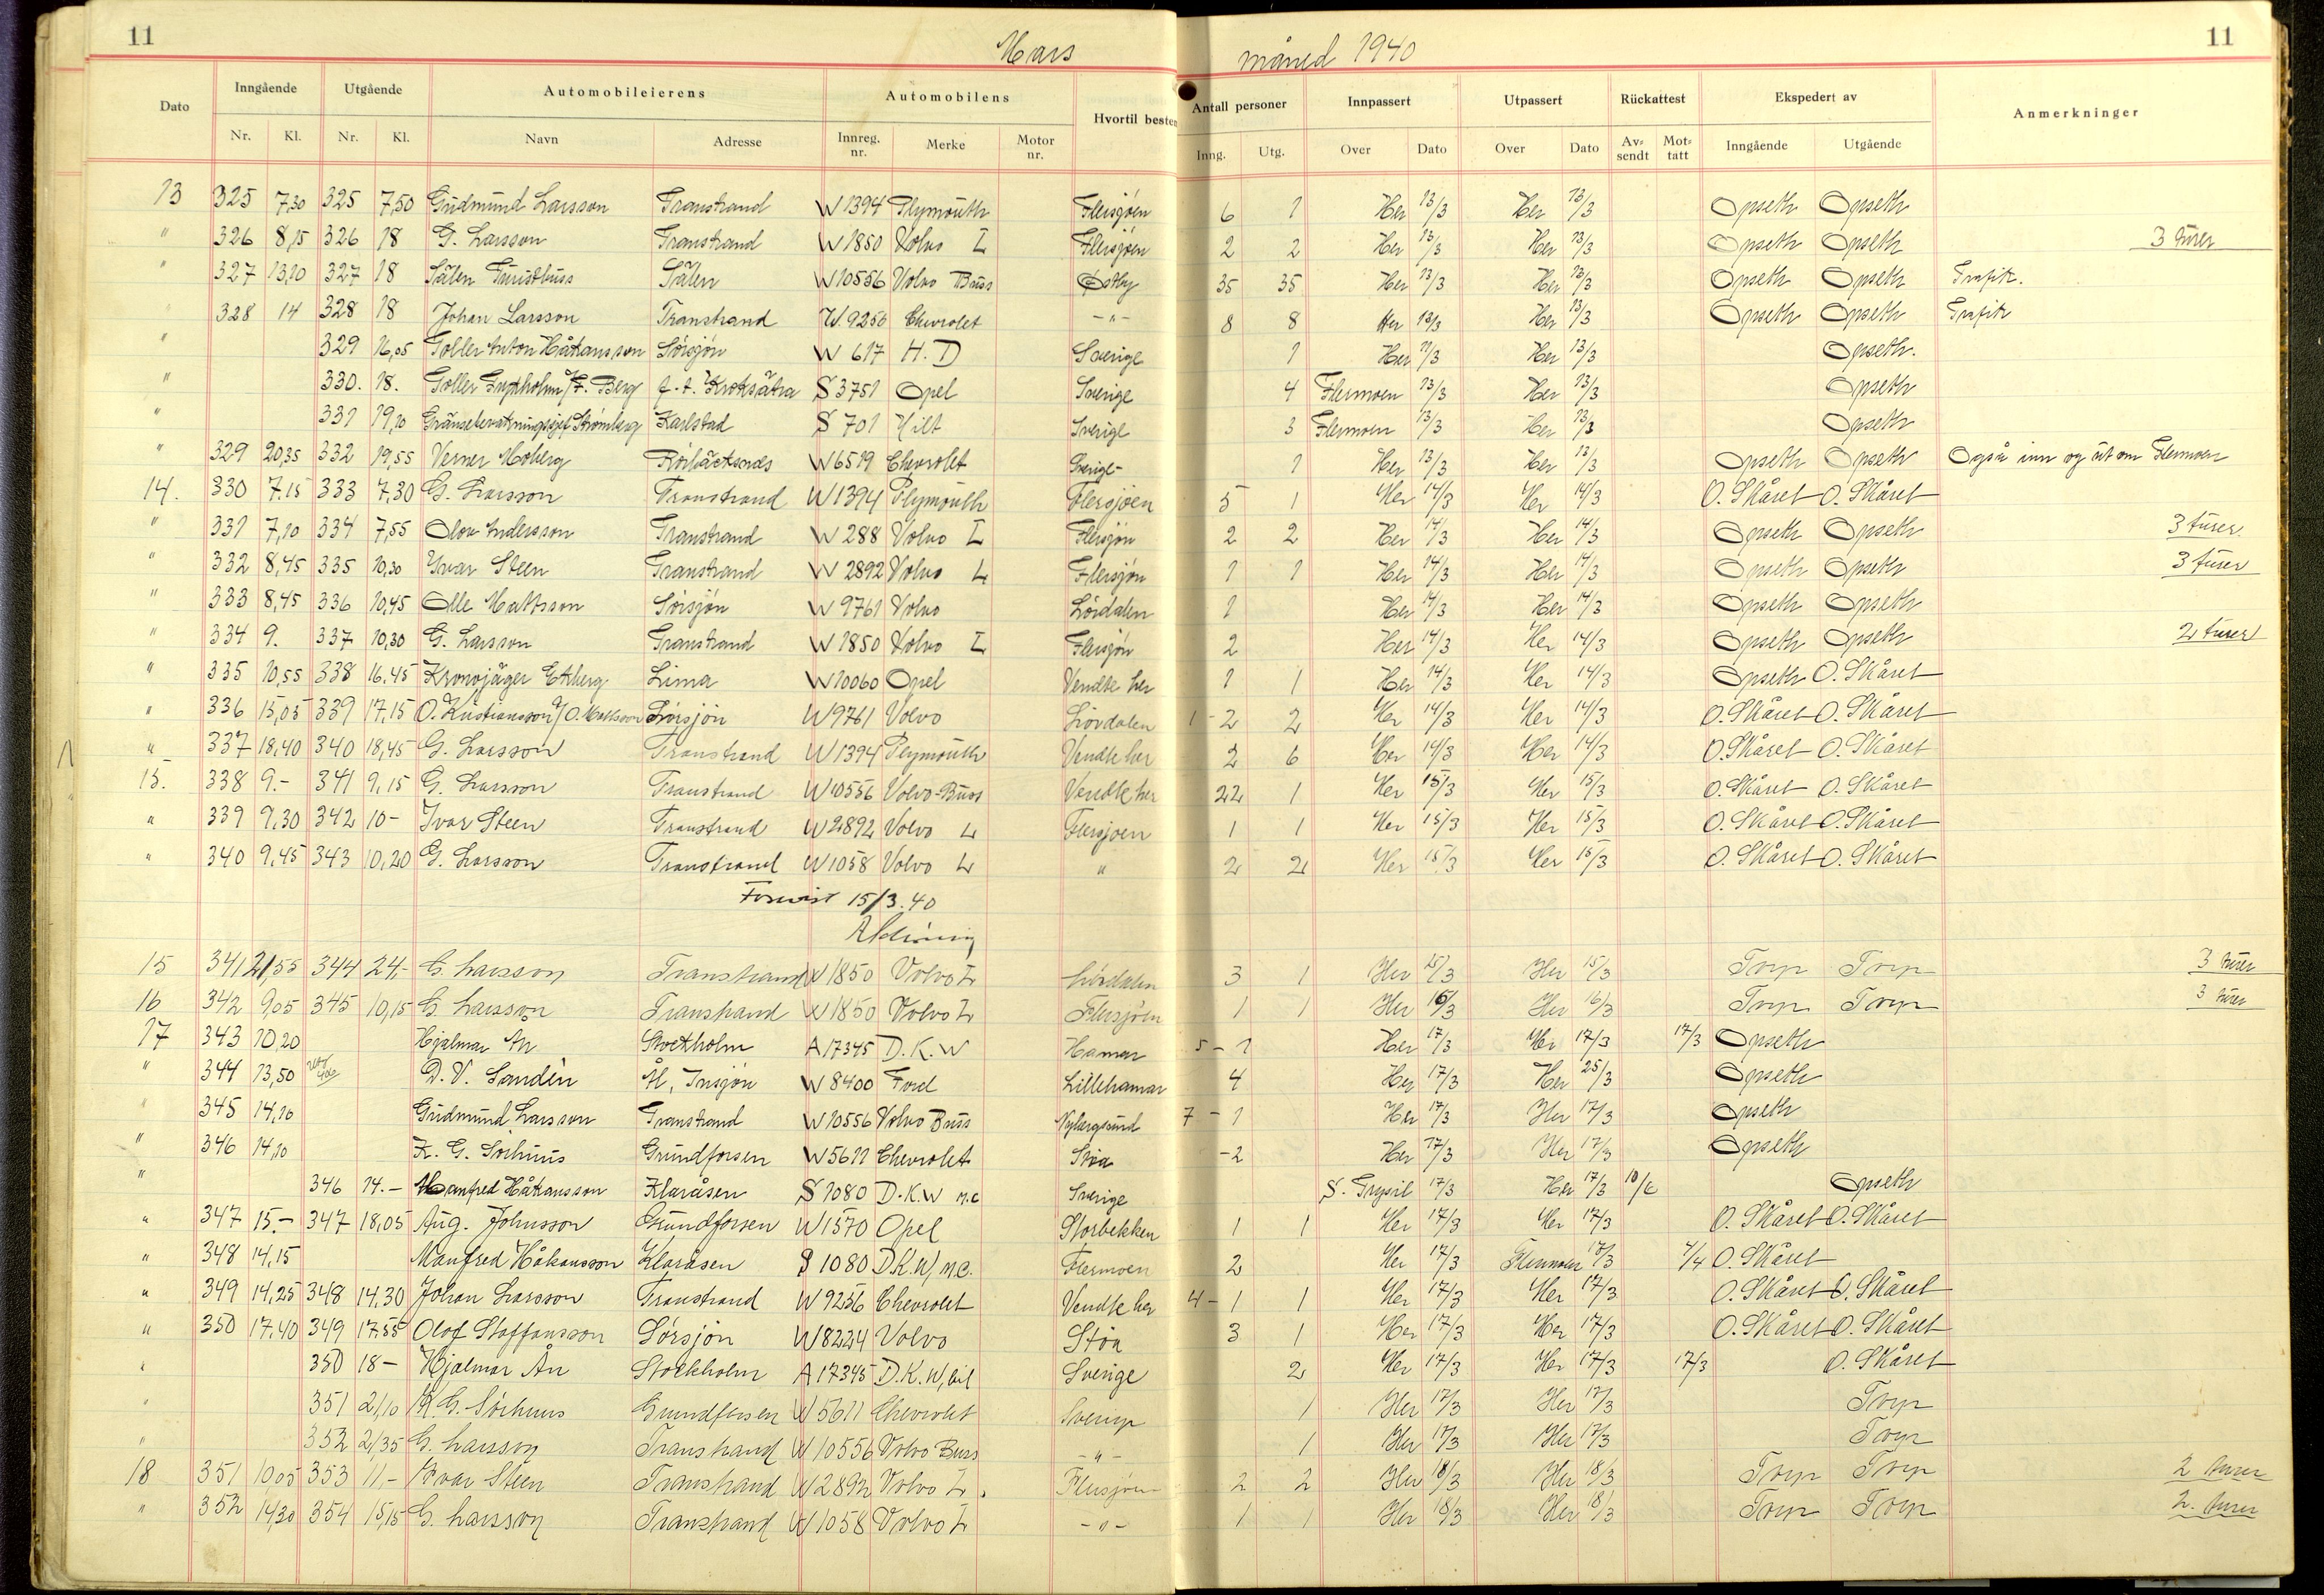 11
Mars
måned 1940
11
Dato Inngående Utgående Automobileierens Automobilens Hvortil besten Antall personer Innpassert Utpassert Rückattest Ekspedert av Anmerkninger
Nr. Kl. Nr. Kl. Navn Adresse Innreg. nr. Merke Motor nr. Inng. Utg. Over Dato Over Dato Av-sendt Mot-tatt Inngående Utgående
13 325 7,30 325 7,50 Gudmund Larsson Transtrand W 1394 Plymouth Flersjøen 6 1 Her 13/3 Her 13/3 Opseth Opseth
" 326 8,15 326 18 G. Larsson Transtrand W 1850 Volvo L Flersjøen 2 2 Her 13/3 Her 13/3 Opseth Opseth 3 turer
" 327 13,10 327 18 Sälen Turistbuss Sälen W 10556 Volvo Buss Østby 35 35 Her 13/3 Her 13/3 Opseth Opseth Trafik.
" 328 14 328 18 Johan Larsson Transtrand W. 9256 Chevrolet -"- 8 8 Her 13/3 Her 13/3 Opseth Opseth Trafik
" 329 16,05 Toller Anton Håkansson Sörsjön W 617 H. D Sverige 1 Her 11/3 Her 13/3 Opseth.
" 330. 18. Toller / F. Berg Kroksätra S 3751 Opel Sverige 4 Flermoen 13/3 Her 13/3 Opseth
" 331 19,10 Gränsebevakningssjef Strömberg Karlstad S 701 Sverige 3 Flermoen 13/3 Her 13/3 Opseth
" 329 20,35 332 19,55 Verner Moberg Rörbäcksnäs W 6519 Chevrolet Sverige- 1 Her 13/3 Her 13/3 Opseth Opseth Også inn og ut om Flermoen
14. 330 7.15 333 7,30 G. Larsson Transtrand W 1394 Plymouth Flersjøen 5 1 Her 14/3 Her 14/3 O. Skåret O. Skåret
" 331 7,10 334 7,55 Olov Andersson Transtrand W 288 Volvo L Flersjön 2 2 Her 14/3 Her 14/3 Opseth Opseth 3 turer.
" 332 8,45 335 10,30 Yvar Steen Transtrand W 2892 Volvo L Flersjön 1 1 Her 14/3 Her 14/3 Opseth Opseth 3 turer
" 333 8,45 336 10,45 Olle Mattsson Sörsjön W 9761 Volvo Lördalen 1 Her 14/3 Her 14/3 Opseth Opseth
" 334 9. 337 10,30 G. Larsson Transtrand W 1850 Volvo L Flersjön 2 Her 14/3 Her 14/3 Opseth Opseth 2 turer
" 335 10,55 338 16.45 Kronojäger Ekberg Lima W 10060 Opel Vendte her 1 1 Her 14/3 Her 14/3 Opseth O. Skåret
" 336 15,05 339 17,15 O. Kristiansson / O. Mattsson Sörsjön W 9761 Volvo Lördalen 1-2 2 Her 14/3 Her 14/3 O. Skåret O. Skåret
" 337 18,40 340 18,45 G. Larsson Transtrand W 1394 Plymouth Vendte her 2 6 Her 14/3 Her 14/3 O. Skåret O. Skåret
15. 338 9.- 341 9,15 G. Larsson Transtrand W 10556 Volvo-Buss Vendte her 22 1 Her 15/3 Her 15/3 O. Skåret O. Skåret
" 339 9,30 342 10- Ivar Steen Transtrand W 2892 Volvo L Flersjoen 1 1 Her 15/3 Her 15/3 O. Skåret O. Skåret
" 340 9,45 343 10,20 G. Larsson Transtrand W 1058 Volvo L " 2 2 Her 15/3 Her 15/3 O. Skåret O. Skåret
Forevist 15/3.40
15 341 21,55 344 24,- G. Larsson Transtrand W 1850 Volvo L Lördalen 3 1 Her 15/3 Her 15/3 Torp Torp 3 turer
16 342 9,05 345 10,15 G. Larsson Transtrand W 1850 Volvo L Flersjöen 1 1 Her 16/3 Her 16/3 Torp Torp 3 turer
17 343 10,20 Hjalmar Ån Stockholm A 17345 D.K.W Hamar 5-1 Her 17/3 Her 17/3 17/3 Opseth
" 344 13,50 406 D. V. Sandin Ål, Insjön W 8400 Ford Lillehamar 4 Her 17/3 Her 25/3 Opseth
" 345 14,10 Gudmund Larsson Transtrand W 10556 Volvo Buss Nybergsund 7-1 Her 17/3 Her 17/3 Opseth
" 346 14,10 K. G. Sörhuus Grundforsen W 5611 Chevrolet Støa -2 Her 17/3 Her 17/3 Opseth
" 346 14.- Manfred Håkansson Klaråsen S 1080 D.K.W m.c Sverige S. Trysil 17/3 Her 17/3 Opseth
" 347 15.- 347 18,05 Aug. Johnsson Grundforsen W 1570 Opel Storbekken 1 1 Her 17/3 Her 17/3 O. Skåret O. Skåret
" 348 14,15 Manfred Håkansson Klaråsen S 1080 D.K.W, m.c. Flermoen 2 Her 17/3 Flermoen 17/3 O. Skåret
" 349 14,25 348 14,30 Johan Larsson Transtrand W 9256 Chevrolet Vendte her 4-1 1 Her 17/3 Her 17/3 O. Skåret O. Skåret
" 350 17,40 349 17,55 Olof Staffansson Sörsjön W 8224 Volvo Støa 3 1 Her 17/3 Her 17/3 O. Skåret O. Skåret
" 350 18- Hjalmar Ån Stockholm A 17345 D.K.W, bil Sverige 2 Her 17/3 Her 17/3 17/3 O. Skåret
" 351 21,10 K. G. Sörhuus Grundforsen W 5611 Chevrolet Sverige 1 Her 17/3 Her 17/3 Torp
" 352 21,35 G. Larsson Transtrand W 10556 Volvo Buss -"- 1 Her 17/3 Her 17/3 Torp
18 351 10,05 353 11,- Ivar Steen Transtrand W 2892 Volvo L. Flersjön 2 2 Her 18/3 Her 18/3 Torp Torp 2 turer
" 352 14,30 354 15,15 G. Larsson Transtrand W 1058 Volvo L -"- 1 1 Her 18/3 Her 18/3 Torp Torp 2. turer